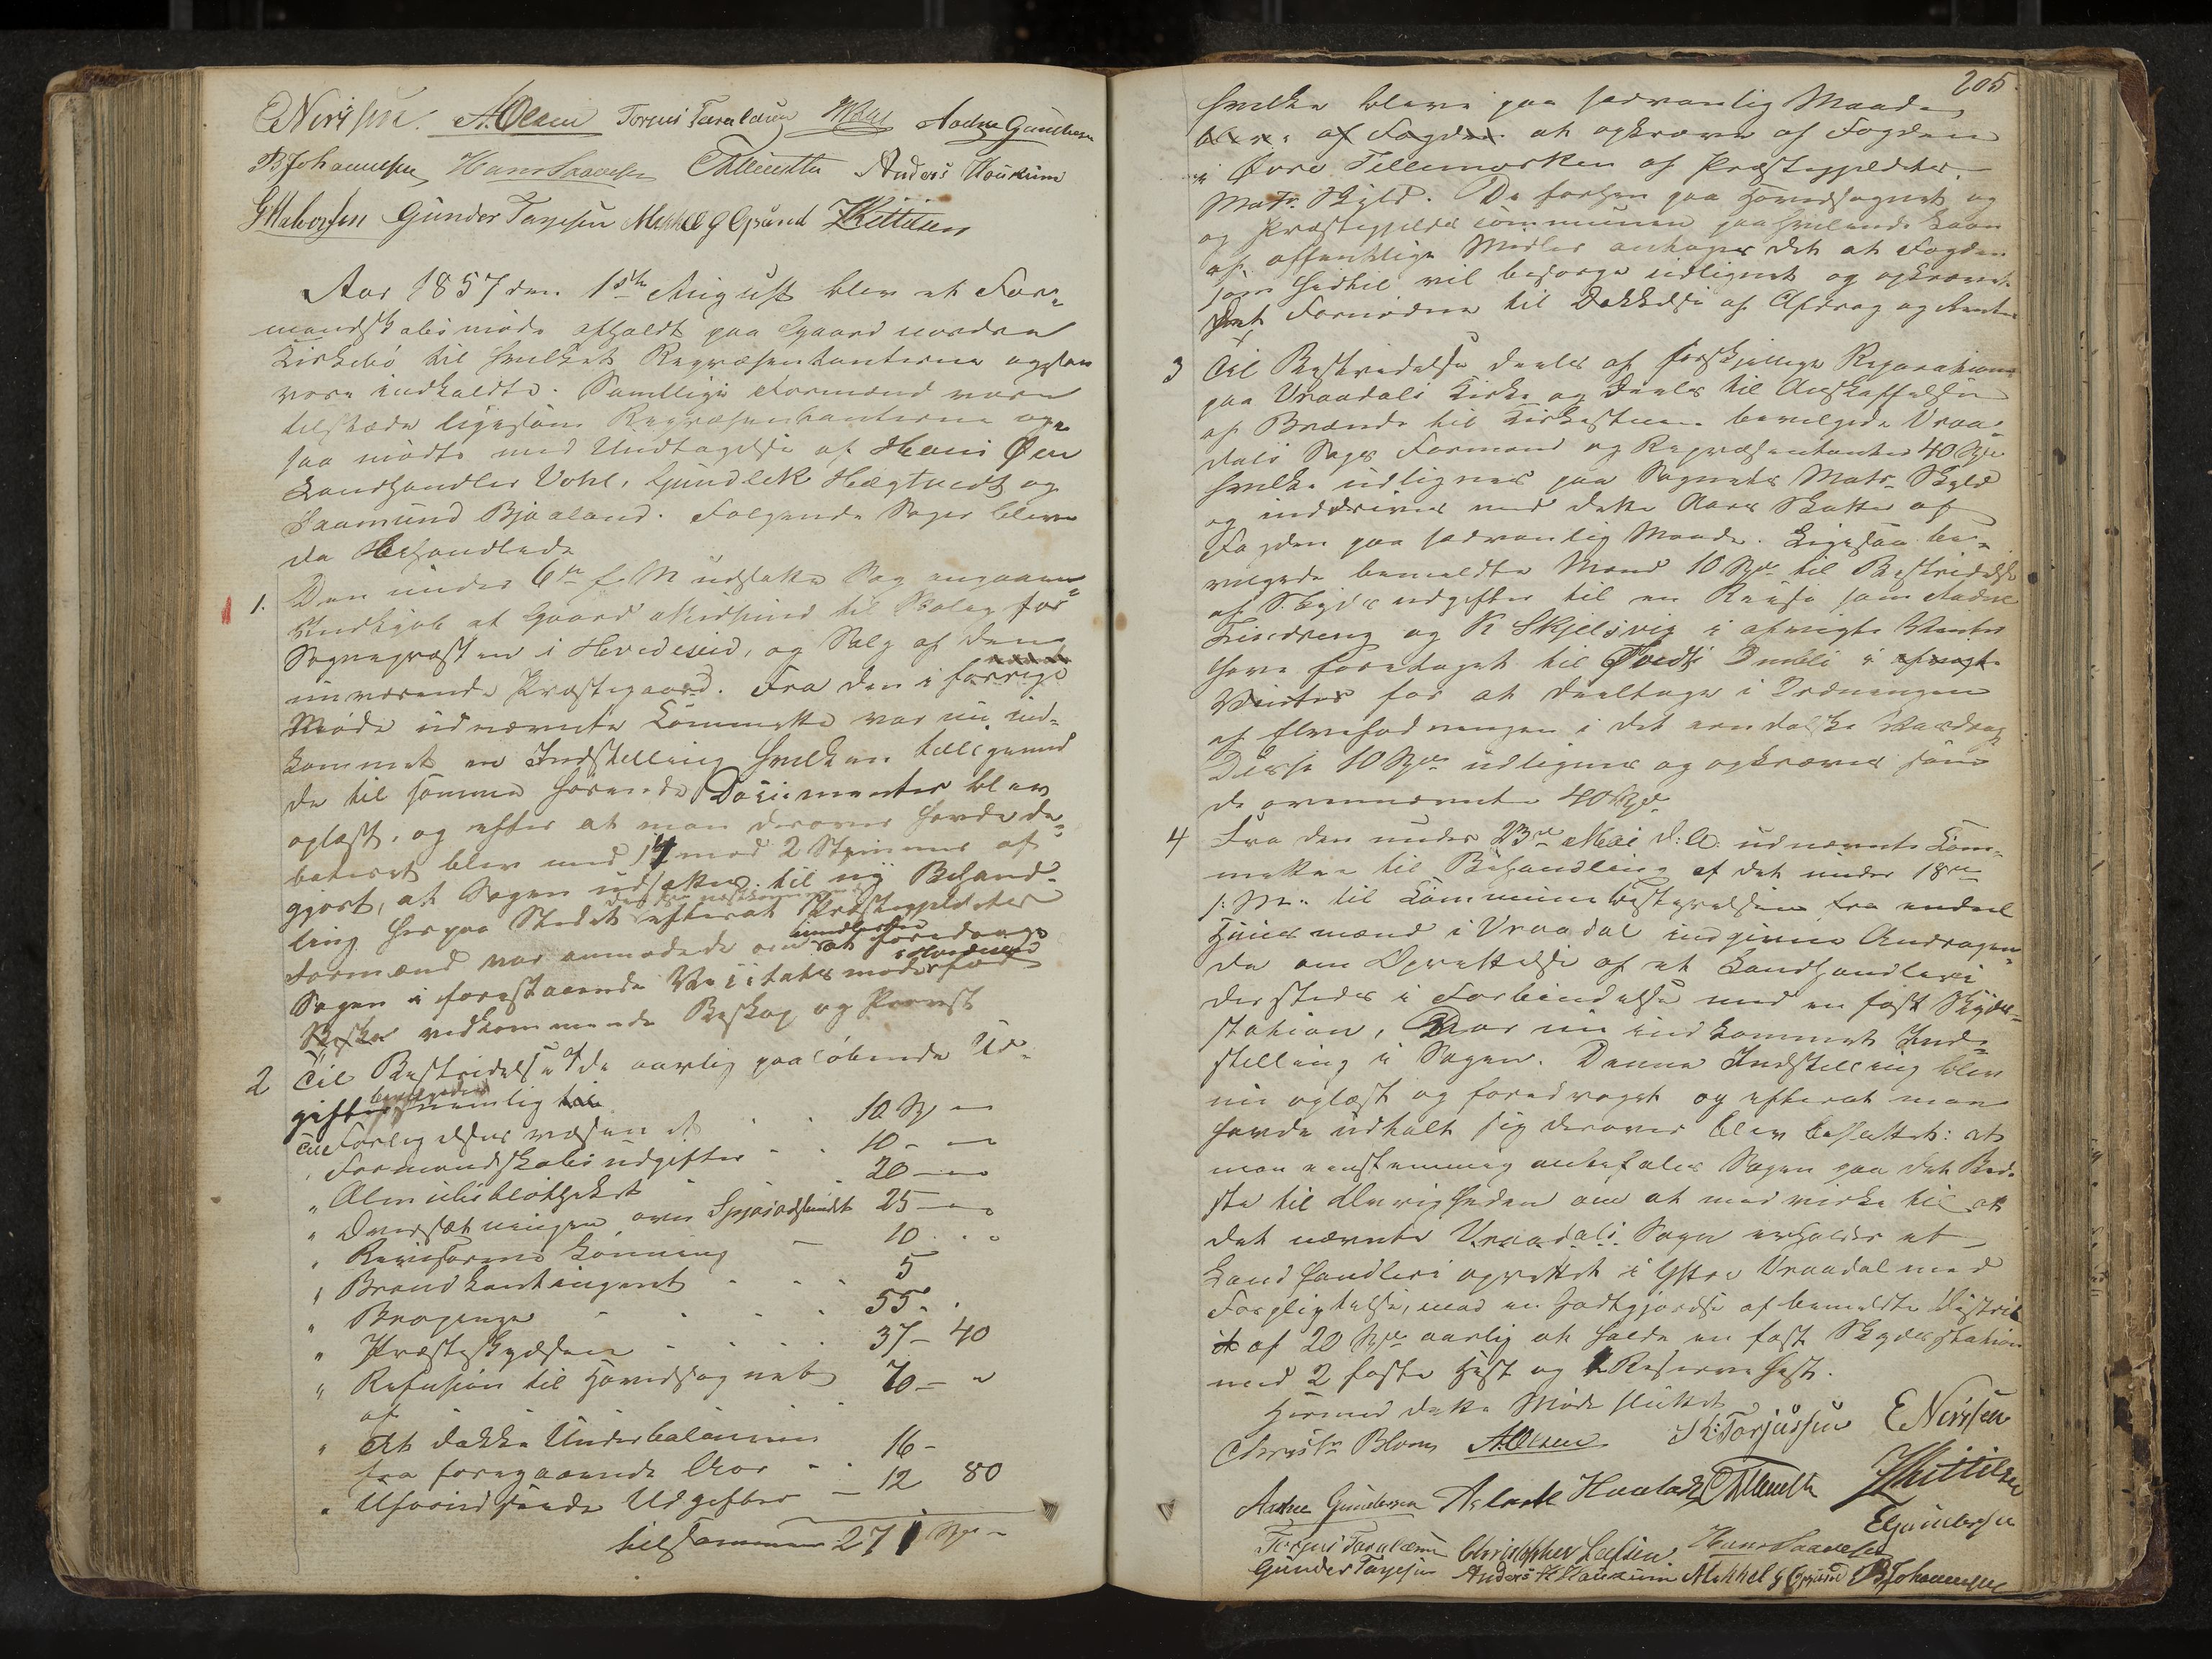 ENirisen. A. Olsen Torjus Taraldsen Aadne Gundersen
B Johannessen Hans Saavesen Anders Haukum
G Halvorsen Gunder Tarjesen Mikkel G Opsund J Kittilsen
Aar 1857 den 1ste August blev et For=
mandskabsmøde afholdt paa Gaard nordre
Kirkebø til hvilket Repræsentanterne ogsaa
vare indkaldte. Samtlige Formænd vare
tilstæde ligesom Repræsentanterne og=
saa mødte med Undtagelse af Hans Øen
Landhandler Vohl, Gundlek Hægtvedt og
Saamund Bjaaland. Følgende Sager bleve
da behandlede
1. Den under 6te f. M udsatte Sag angaaen=
Indkjøb af Gaard til Bolig for
Sognepræsten i Hvideseid, og Salg af den
nuværende Præstegaard. Fra den i forrige
Møde udnævnte Committe var nu ind=
kommet en Indstilling hvilken tilligemed
de til samme hørende Documenter blev
oplæst, og efter at man derover havde de=
bateret blev med 14 mod 2 Stemmer af=
gjort, at Sagen udsættes til ny Behand=
ling her paa Stedet efterat Præstegjeldets
Formænd var anmodede om at foredrage
Sagen i forestaaende Visitatsmøde for
vedkommende Biskop og Provst
2 Til Bestridelse af de aarlig paaløbende Ud=
gifter bevilgedes nemlig
Til Forligelsesvæsenet . . 10 Spd —
" Formandskabsudgifter . . 10 - —
" Almuebibliotheket . . 20 — "
" Oversætningen over Spjosodsundet 25 — "
" Revisorens Lønning — 10 . . "
" Brandkontingent . . . 5
" Bropenge . . . 55. .
" Præsteskydsen . . . 37 — 40
" Refusion til Hovedsognet 70 — "
af
" At dække Underbalancen
fra foregaaende Aar . . 16 -
" Uforudseede Udgifter — 12 80
tilsammen 271 Spd —
205.
hvilke bleve paa sædvanlig Maade
af Fogden at opkræve af Fogden
i Øvre Tellemarken af Præstegjeldets
Matr. Skyld. De forhen paa Hovedsognet og
og Præstegjelds Communen paahvilende Laan
af offentlige Midler antages det at Fogden
som hidtil vil besørge udlignet og opkrævet
det Fornødne til Dækkelse af Afdrag og Renter
3 Til Bestridelse deels af forskjellige Reparationer
paa Vraadals Kirke og deels til Anskaffelse
af Brænde til Kirkestuen bevilgede Vraa=
dals Sogns Formænd og Repræsentanter 40 Spd
hvilke udlignes paa Sognets Matr. Skyld
og inddrives med dette Aars Skatter af
Fogden paa sædvanlig Maade. Ligesaa be=
vilgede bemeldte Mænd 10 Spd til Bestridelse
af Skydsudgifter til en Reise som Aadne
og K Skjelsvig i afvigte Vinter
have foretaget til i afvigte
Vinter for at deeltage i Ordningen
af Elvefødningen i det arendalske Vasdrag
Disse 10 Spd udlignes og opkræves som
de ovennævnte 40 Spd.
4 Fra den under 23de Mai d: A: udnævnte Com=
mittee til Behandling af det under 18de
s: M. til Communebestyrelsen fra endeel
Huusmænd i Vraadal indgivne Andragen=
de om Oprettelse af et Landhandleri
dersteds i Forbindelse med en fast Skyds=
station, var nu indkommet Ind=
stilling i Sagen. Denne Indstilling blev
nu oplæst og foredraget og efterat man
havde udtalt sig derover blev besluttet: at
man eenstemmig anbefaler Sagen paa det Bed=
ste til Øvrigheden om at medvirke til at
det nævnte Vraadals Sogn erholder et
Landhandleri oprettet i Yttre Vraadal med
Forpligtelse, mod en Godtgjørelse af bemeldte Distrik
t af 20 Spd aarlig at holde en fast Skydsstation
med 2 faste Hest og 1 Reserve Hest.
Hermed dette Møde sluttet
Christn Blom A. Olsen Torjussen E Nirisen
Aadne Gundersen Aslak J Kittilsen
E Gundersen
Torjus Taraldsen Christopher Leifsen. Hans Saavesen
Gunder Tarjesen Anders H Haukum Mikkel G Opsund B Johannessen